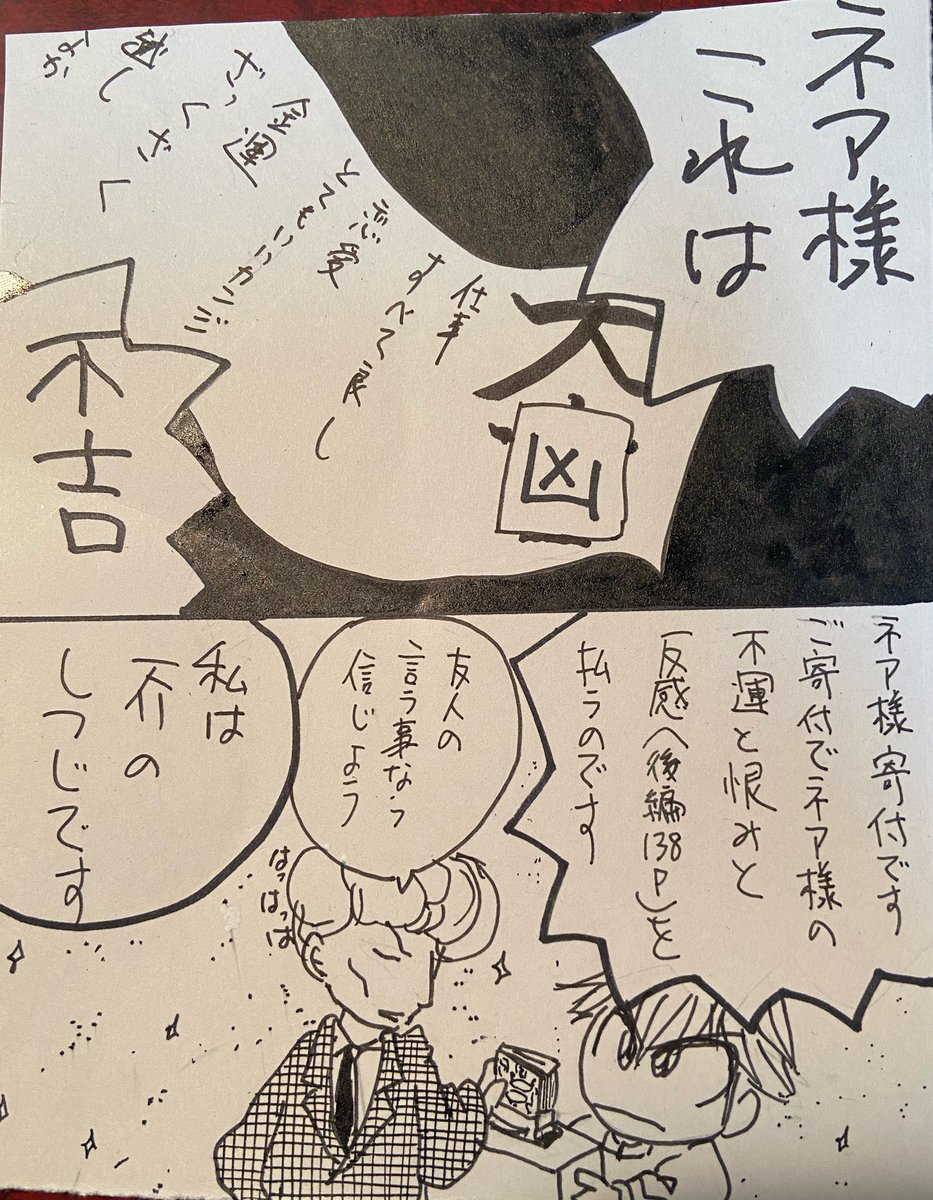 ネア様
これは
大
凶
仕事
すべて良し
恋愛
とてもいいカンジ
金運
ざっく
ざく
越し
不吉
ネア様寄付です
ご寄付でネア様の
不運と恨みと
反感へ後編138P」を
払うのです
友人の
言う事なら
信じよう
私は
一介の
しつじです
はっはっは